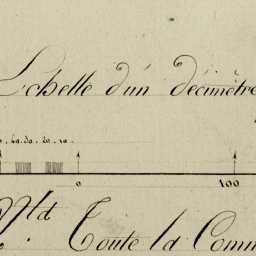 Echelle d'un décimètre
40. 30. 20. 10.
0 100
Nta Toute la Com